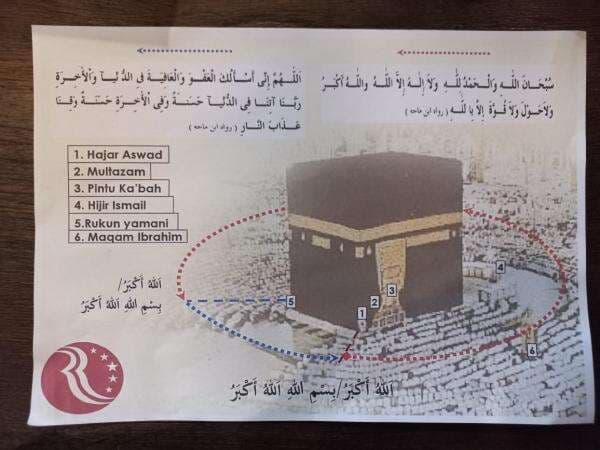 سُبْحَانَ اللَّهِ وَالْحَمْدُ لِلَّهِ وَلَا إِلَهَ إِلَّا اللَّهُ وَاللَّهُ أَكْبَرُ
وَلَاحَوْلَ وَلَا قُوَّةَ إِلَّا بِا للَّهِ ( رواه ابن ماجه )
اَللَّهُمَّ إِنِّى أَسْأَلُكَ الْعَفْوَ وَالْعَافِيَةَ فِى الدُّ نْيَا وَالْأَخِرَةِ
رَبَّنَا آتِنَا فِى الدُّنْيَآ حَسَنَةً وَفِى الْأَخِرَةِ حَسَنَةً وَقِنَا
عَذَابَ النَّارِ ( رواه ابن ماجه )
1. Hajar Aswad
2. Multazam
3. Pintu Ka'bah
4. Hijir Ismail
5.Rukun yamani
6. Maqam Ibrahim
اَللهُ أَكْبَرُ/
بِسْمِ اللهِ اَللهُ أَكْبَرُ
4
3
5
2
1
6
اَللهُ أَكْبَرُ/بِسْمِ اللهِ اَللهُ أَكْبَرُ